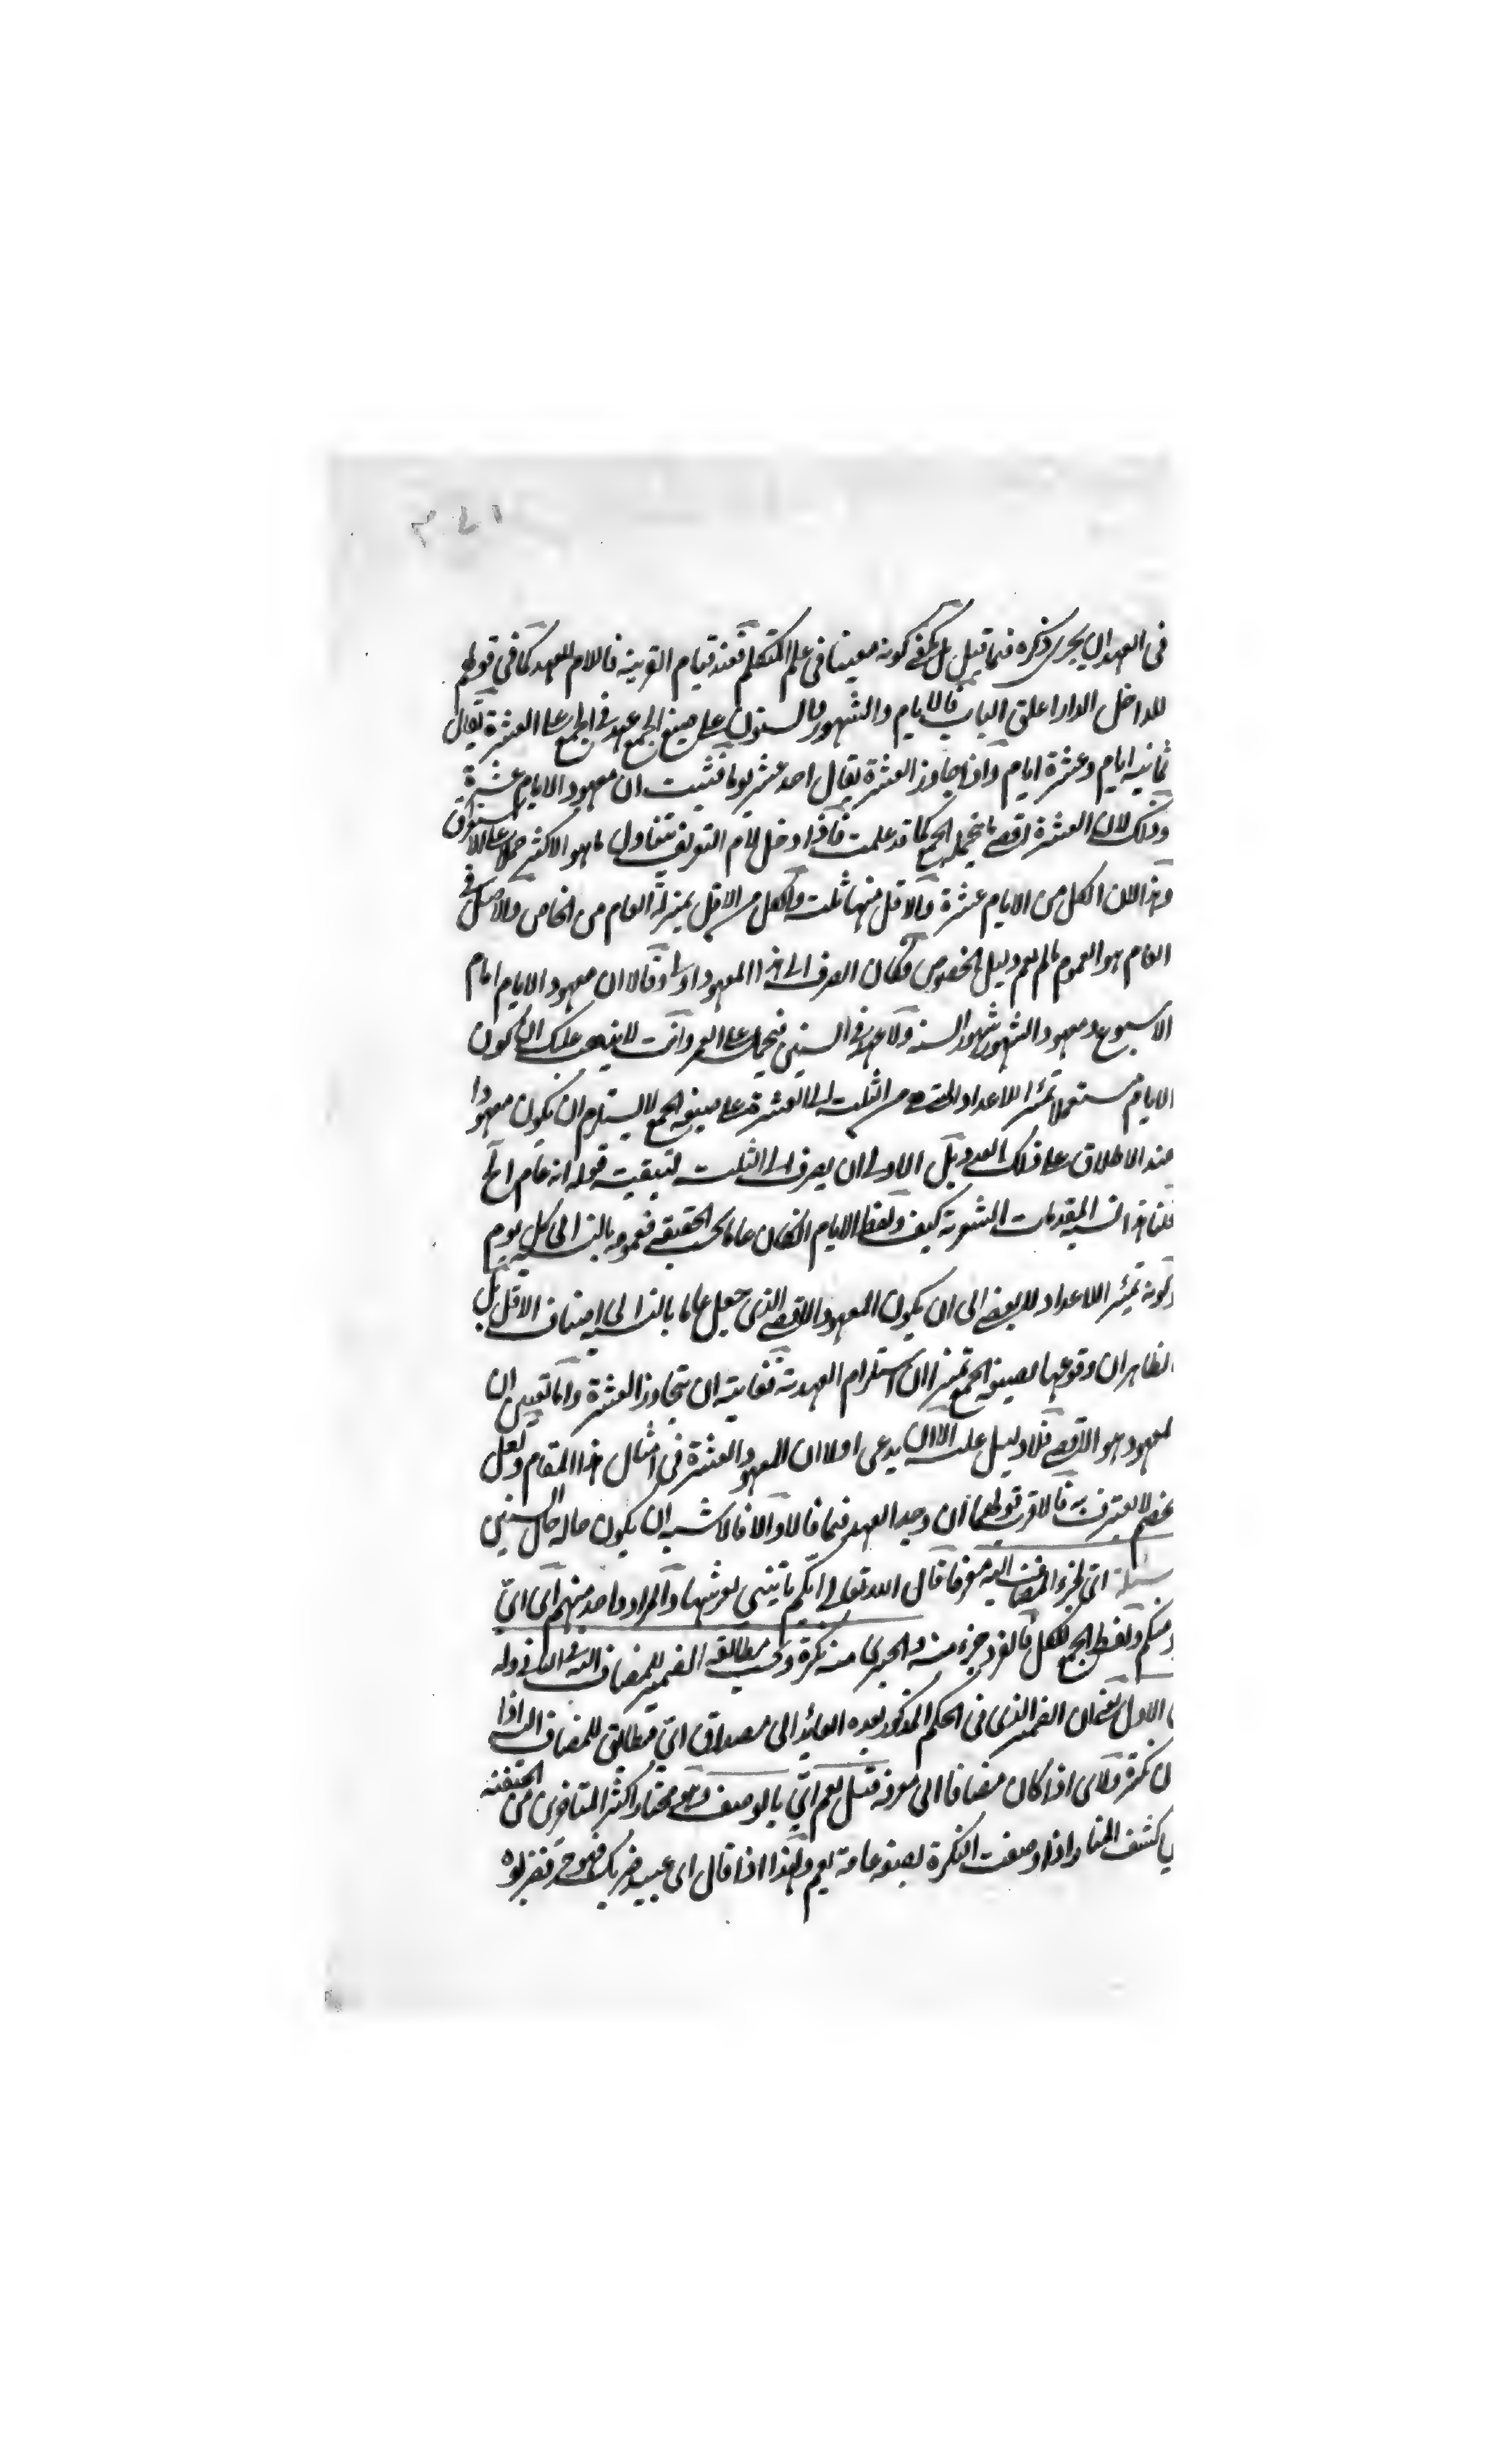 في العهد ان يجري ذكره فيما قبل بل يكفي كونه معينا في علم المتكلم فعند قيام القرينة فاللام للعهد كما في قولهم
للداخل الدار اغلق الباب فالايام والشهور والسنون على صيغ الجمع عهد في الجمع على العشرة يقال
ثمانية ايام وعشرة ايام واذا جاوز العشرة يقال احد عشر يوما فثبت ان معهود الايام عشرة
وذلك لان العشرة اقصى ما يحتمله الجمع كما قد علمت فاذا دخل لام التعريف يتناول ما هو الاكثر حملا على الاستغراق
وهذا لان الكل من الايام عشرة والاقل منها ثلث والكل من الاقل بمنزلة العام من الخاص والاصل في
العام هو العموم ما لم يعم دليل الخصوص فكان الصرف الى هذا المعهود اولى وقالا ان معهود الايام ايام
الاسبوع ومعهود الشهور شهور السنة ولا عهد في السنين فيحمل على العمر وانت لا يذهب عليك ان كون
الايام مستعملا تمييز الاعداد المخصوصة من الثلث الى العشرة على صيغة الجمع لا يستلزم ان يكون معهودا
عند الاطلاق على ذلك العدد بل الاولى ان يصرف الى الثلث لتيقنه قوله انه عام الخ
قلنا هذا اشبه المقدمات الشعرية كيف ولفظ الايام ان كان عاما بحسب الحقيقة فعمومه بالنسبة الى كل يوم
وكونه تمييز الاعداد لا يفضي الى ان يكون المعهود الاقصى الذي جعل عاما بالنسبة الى اصناف الاقل بل
الظاهر ان وقوعها بصيغة الجمع تمييزا ان استلزام العهدية فغايته ان يتجاوز العشرة واما تعيين ان
المعهود هو الاقصى فلا دليل عليه الا ان يدعى اولا ان المعهود العشرة في امثال هذا المقام ولعل
الخصم لا يعترف به فالاقرب قولهما ان وجد العهد فيما قالا والا فالاشبه ان يكون حاله حال السنين
مسئلة اي لجزء المضاف اليه معرفا قال الله تعالى ايكم ياتيني بعرشها والمراد واحد منهم اي اي
منكم ولفظ الجمع للكل فالفرد جزء منه والجزئي منه نكرة ويجب مطابقة الضمير للمضاف اليه في الثاني دون
الاول يعني ان الضمير الذي في الحكم المذكور بعده العائد الى مصداق اي مطابق للمضاف اليه اذا
كان نكرة ولاي اذا كان مضافا الى معرفة قيل يعم اي بالوصف وهو مختار اكثر المتاخرين من الحنفية
في كشف المنار واذا وصفت النكرة بصفة عامة يعم ولهذا اذا قال اي عبيدي ضربك فهو حر فضربوه